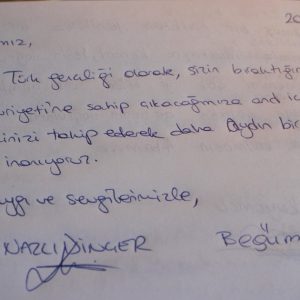 20
mız,
Türk gençliği olarak, sizin bıraktığın
uriyeti'ne sahip çıkacağımıza and iç
inizi takip ederek daha aydın bir
inanıyoruz.
ygı ve sevgilerimizle,
NAZLI DİNÇER Begüm